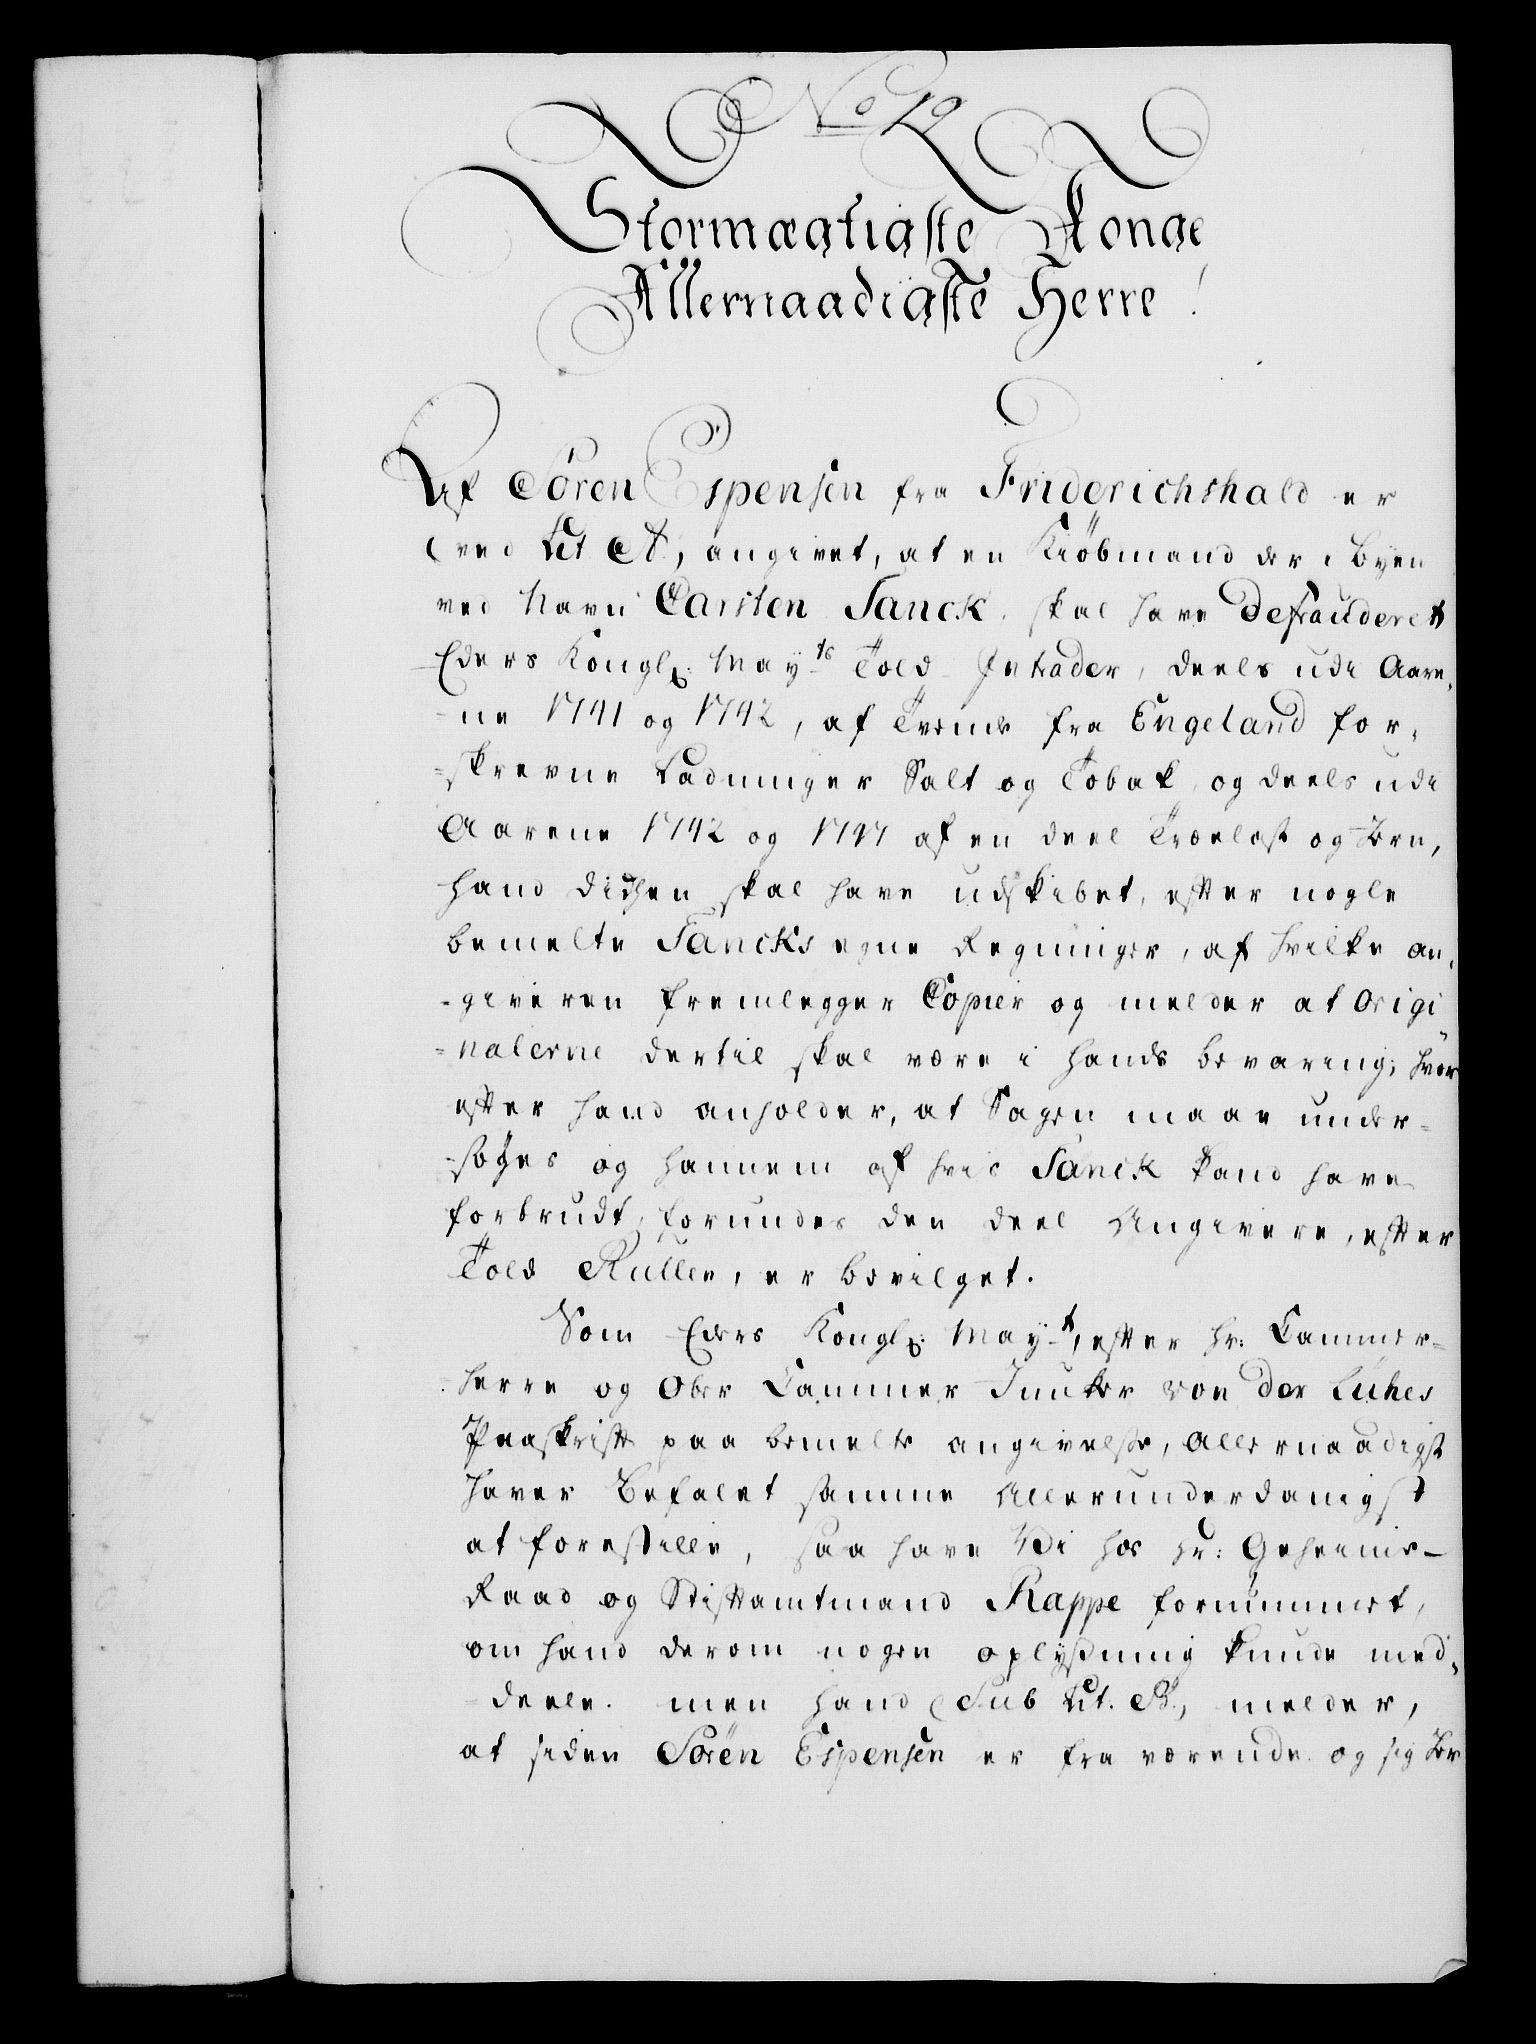 No 19
Stormægtigste Konge
Allernaadigste Herre!
Af Sören Espensen fra Friderichshald er
(ved Lit. A., angivet, at en Kiöbmand der i Byen
ved Navn Carsten Tanck, skal have defrauderet
Eders Kongl. May.ts Told Intrader, deels udi Aare-
-ne 1741 og 1742, af Tvende fra Engeland for-
-skrevne Ladninger Salt og Tobak, og deels udi
Aarene 1742 og 1747 af en deel Trælast og Brn,
hand selv skal have udskibet, efter nogle
bemelte Tancks egne Regninger, af hvilke an-
-giveren fremlegger Copier og melder at Origi
-nalerne dertil skal være i hands bevaring; hvor
efter hand anholder, at Sagen maae under-
-söges og hannem af hvis Tanck kand have
forbrudt, forundes den deel Angivere, efter
Told Rullen, er bevilget.
Som Eders Kongl. May.t, efter Hr: Cammer-
herre og Ober Cammer Junker von der Lühes
Paaskrift paa bemelte angivelse, Allernaadigst
haver Befalet samme Allerunderdanigst
at forestille, saa have Vi hos Hr: Geheime-
Raad og Stiftamtmand Rappe fornummet,
om hand derom nogen oplysning kunde med-
-deele. men hand (Sub Lit. B., melder,
at siden Sören Espensen er fra værende og sig